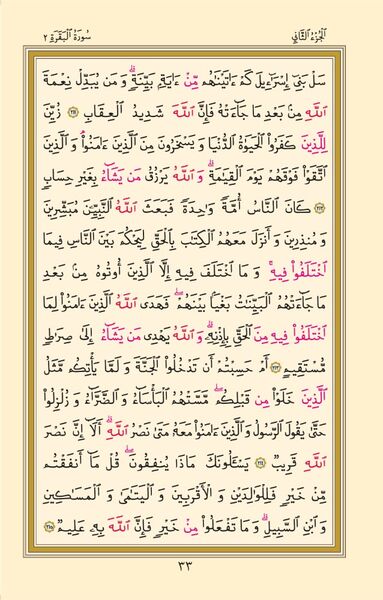 الجزء الثاني
سورة البقرة ٢
سَلْ بَنِىٓ إِسْرَٰٓءِيلَ كَمْ ءَاتَيْنَٰهُم مِّنْ ءَايَةٍۭ بَيِّنَةٍۗ وَ مَن يُبَدِّلْ نِعْمَةَ
ٱللَّهِ مِنۢ بَعْدِ مَا جَآءَتْهُ فَإِنَّ ٱللَّهَ شَدِيدُ ٱلْعِقَابِ ﴿٢١١﴾ زُيِّنَ
لِلَّذِينَ كَفَرُوا۟ ٱلْحَيَوٰةُ ٱلدُّنْيَا وَ يَسْخَرُونَ مِنَ ٱلَّذِينَ ءَامَنُوا۟ۘ وَ ٱلَّذِينَ
ٱتَّقَوْا۟ فَوْقَهُمْ يَوْمَ ٱلْقِيَٰمَةِۗ وَ ٱللَّهُ يَرْزُقُ مَن يَشَآءُ بِغَيْرِ حِسَابٍ
﴿٢١٢﴾ كَانَ ٱلنَّاسُ أُمَّةً وَٰحِدَةً فَبَعَثَ ٱللَّهُ ٱلنَّبِيِّۦنَ مُبَشِّرِينَ
وَ مُنذِرِينَ وَ أَنزَلَ مَعَهُمُ ٱلْكِتَٰبَ بِٱلْحَقِّ لِيَحْكُمَ بَيْنَ ٱلنَّاسِ فِيمَا
ٱخْتَلَفُوا۟ فِيهِۚ وَ مَا ٱخْتَلَفَ فِيهِ إِلَّا ٱلَّذِينَ أُوتُوهُ مِنۢ بَعْدِ
مَا جَآءَتْهُمُ ٱلْبَيِّنَٰتُ بَغْيًۢا بَيْنَهُمْۖ فَهَدَى ٱللَّهُ ٱلَّذِينَ ءَامَنُوا۟ لِمَا
ٱخْتَلَفُوا۟ فِيهِ مِنَ ٱلْحَقِّ بِإِذْنِهِۦۗ وَ ٱللَّهُ يَهْدِى مَن يَشَآءُ إِلَىٰ صِرَٰطٍ
مُّسْتَقِيمٍ ﴿٢١٣﴾ أَمْ حَسِبْتُمْ أَن تَدْخُلُوا۟ ٱلْجَنَّةَ وَ لَمَّا يَأْتِكُم مَّثَلُ
ٱلَّذِينَ خَلَوْا۟ مِن قَبْلِكُمۖ مَّسَّتْهُمُ ٱلْبَأْسَآءُ وَ ٱلضَّرَّآءُ وَ زُلْزِلُوا۟
حَتَّىٰ يَقُولَ ٱلرَّسُولُ وَ ٱلَّذِينَ ءَامَنُوا۟ مَعَهُۥ مَتَىٰ نَصْرُ ٱللَّهِۗ أَلَآ إِنَّ نَصْرَ
ٱللَّهِ قَرِيبٌ ﴿٢١٤﴾ يَسْـَٔلُونَكَ مَاذَا يُنفِقُونَۖ قُلْ مَآ أَنفَقْتُم
مِّنْ خَيْرٍ فَلِلْوَٰلِدَيْنِ وَ ٱلْأَقْرَبِينَ وَ ٱلْيَتَٰمَىٰ وَ ٱلْمَسَٰكِينِ
وَ ٱبْنِ ٱلسَّبِيلِۗ وَ مَا تَفْعَلُوا۟ مِنْ خَيْرٍ فَإِنَّ ٱللَّهَ بِهِۦ عَلِيمٌ ﴿٢١٥﴾
٣٣